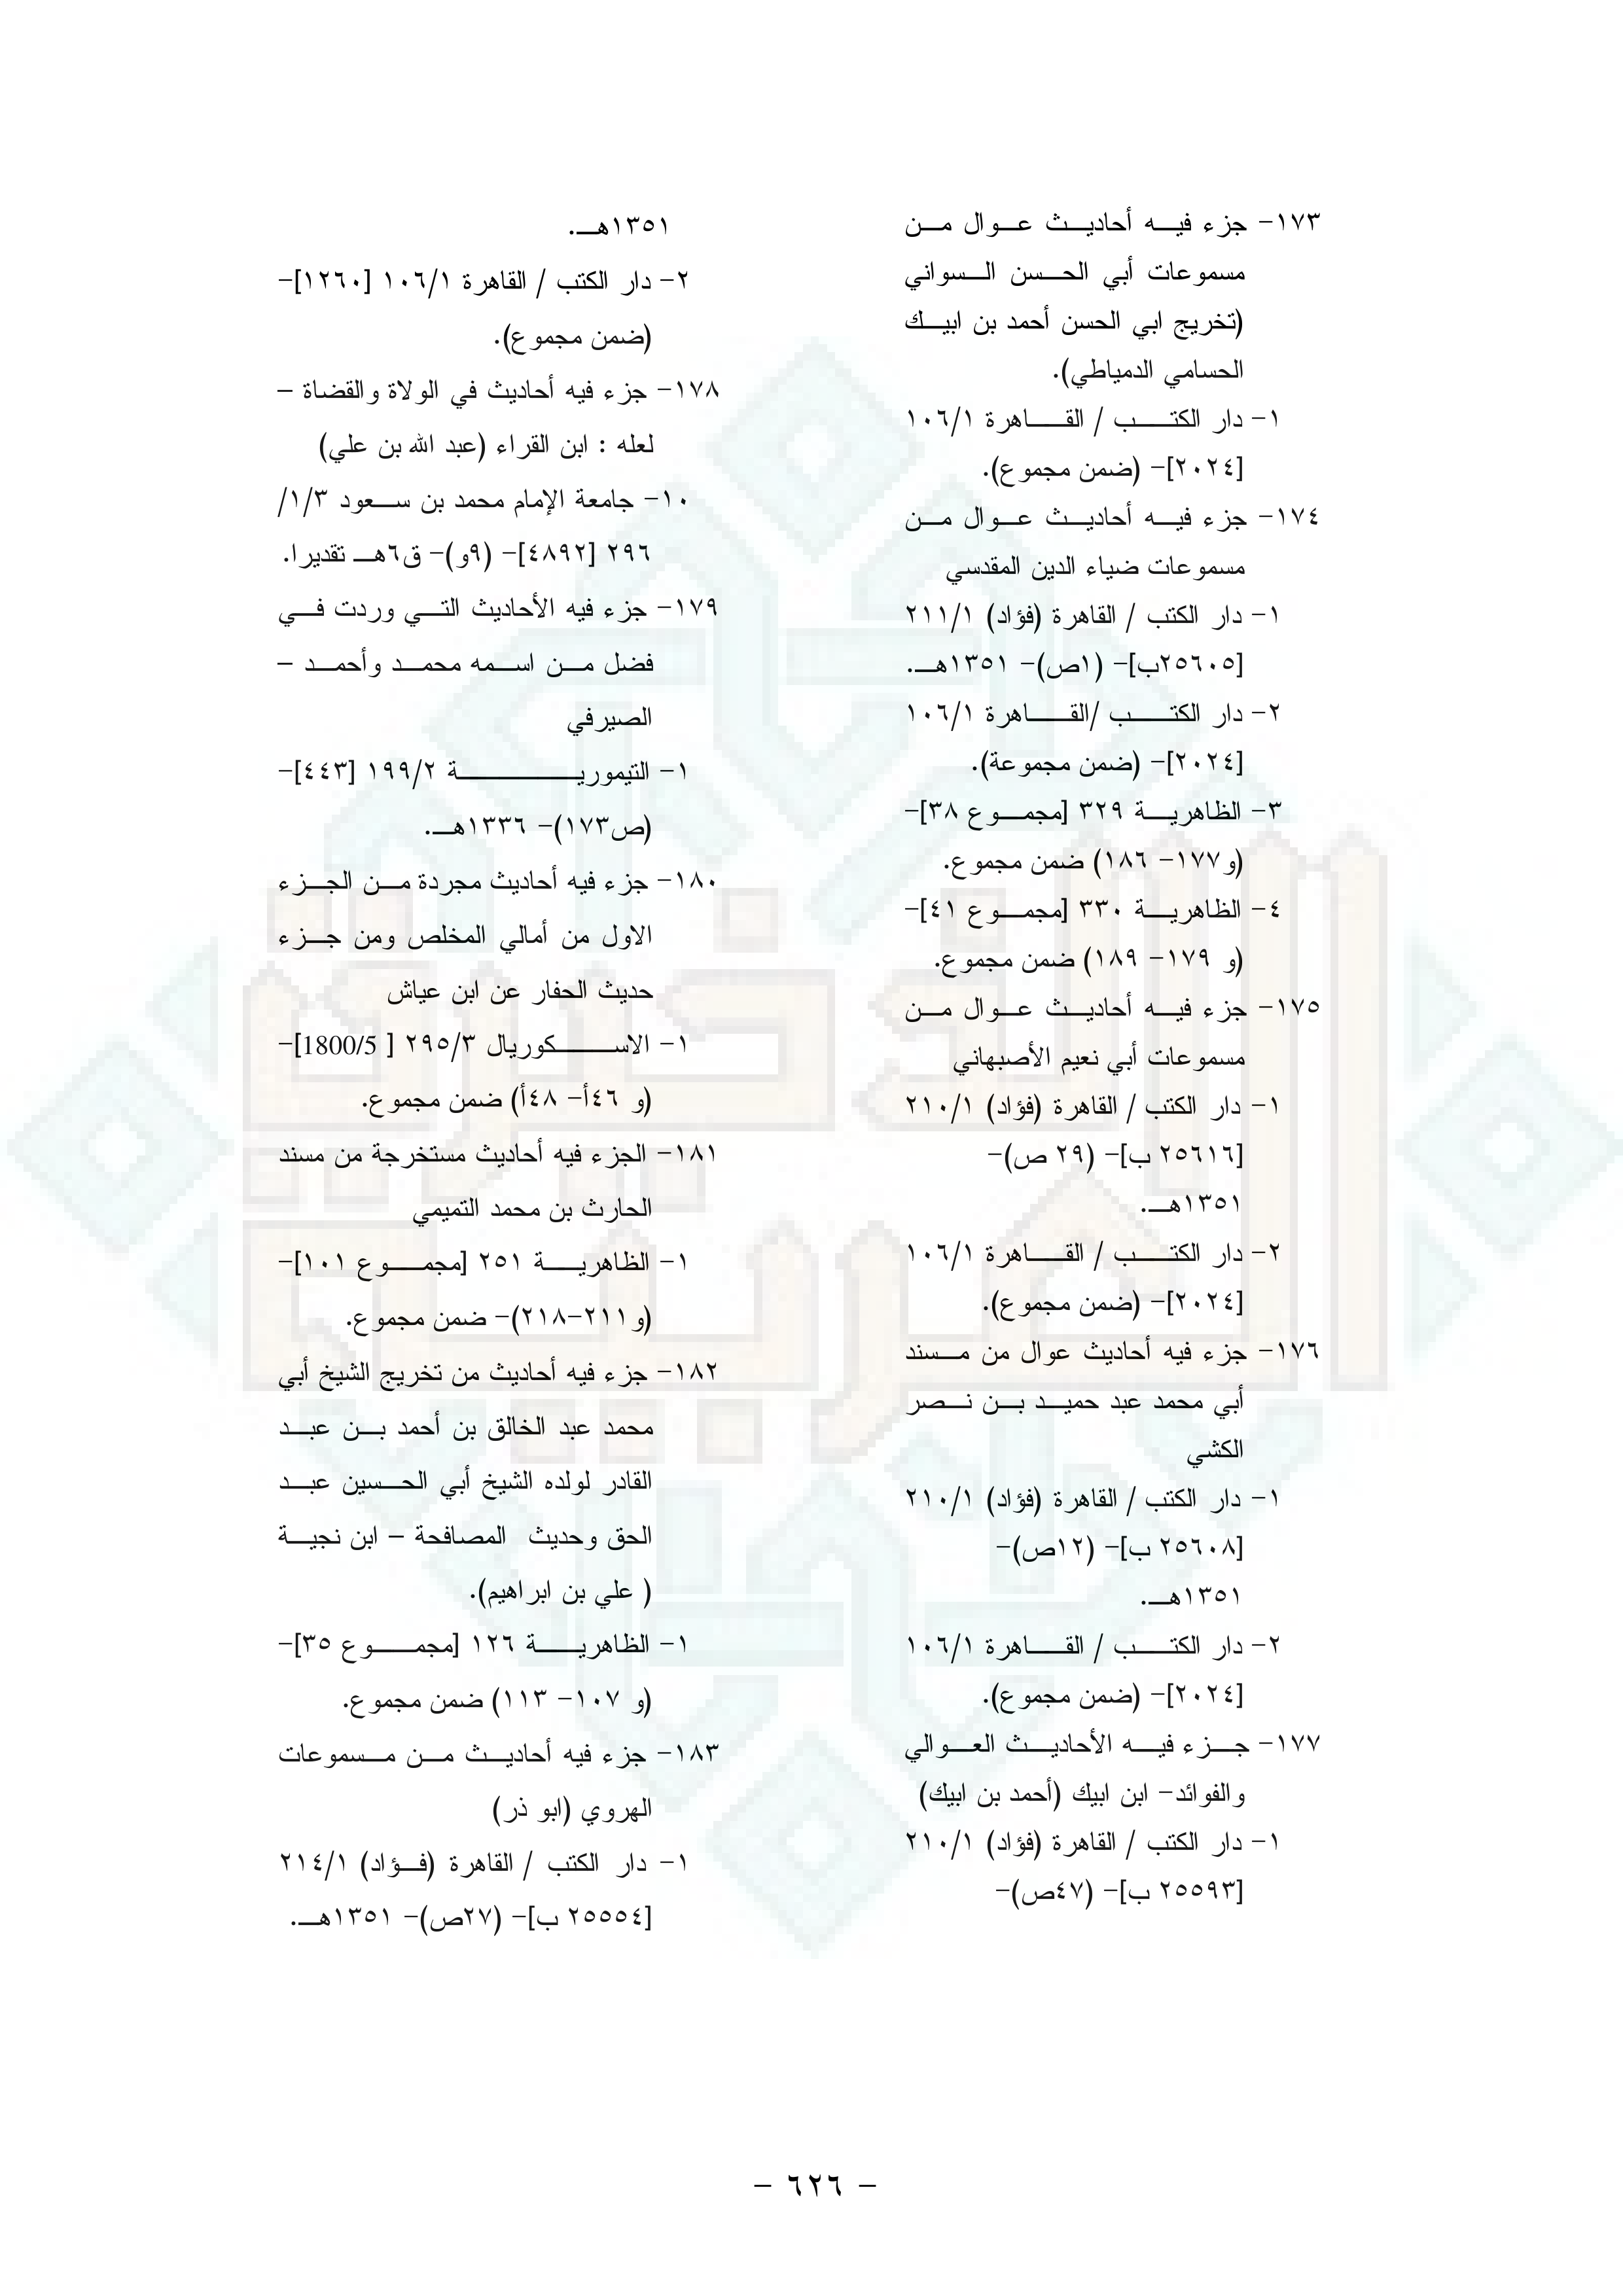 ١٧٣- جزء فيه أحاديث عوال من
مسموعات أبي الحسن السواني
(تخريج ابي الحسن أحمد بن ابيك
الحسامي الدمياطي).
١- دار الكتب / القاهرة ١٠٦/١
[٢٠٢٤]- (ضمن مجموع).
١٧٤- جزء فيه أحاديث عوال من
مسموعات ضياء الدين المقدسي
١- دار الكتب / القاهرة (فؤاد) ٢١١/١
[٢٥٦٠٥ب]- (١ص)- ١٣٥١هـ.
٢- دار الكتب /القاهرة ١٠٦/١
[٢٠٢٤]- (ضمن مجموعة).
٣- الظاهرية ٣٢٩ [مجموع ٣٨]-
(و١٧٧- ١٨٦) ضمن مجموع.
٤- الظاهرية ٣٣٠ [مجموع ٤١]-
(و ١٧٩- ١٨٩) ضمن مجموع.
١٧٥- جزء فيه أحاديث عوال من
مسموعات أبي نعيم الأصبهاني
١- دار الكتب / القاهرة (فؤاد) ٢١٠/١
[٢٥٦١٦ ب]- (٢٩ ص)-
١٣٥١هـ.
٢- دار الكتب / القاهرة ١٠٦/١
[٢٠٢٤]- (ضمن مجموع).
١٧٦- جزء فيه أحاديث عوال من مسند
أبي محمد عبد حميد بن نصر
الكشي
١- دار الكتب / القاهرة (فؤاد) ٢١٠/١
[٢٥٦٠٨ ب]- (١٢ص)-
١٣٥١هـ.
٢- دار الكتب / القاهرة ١٠٦/١
[٢٠٢٤]- (ضمن مجموع).
١٧٧- جزء فيه الأحاديث العوالي
والفوائد- ابن ابيك (أحمد بن ابيك)
١- دار الكتب / القاهرة (فؤاد) ٢١٠/١
[٢٥٥٩٣ ب]- (٤٧ص)-
١٣٥١هـ.
٢- دار الكتب / القاهرة ١٠٦/١ [١٢٦٠]-
(ضمن مجموع).
١٧٨- جزء فيه أحاديث في الولاة والقضاة –
لعله : ابن القراء (عبد الله بن علي)
١٠- جامعة الإمام محمد بن سعود ١/٣/
٢٩٦ [٤٨٩٢]- (٩و)- ق٦هـ تقديرا.
١٧٩- جزء فيه الأحاديث التي وردت في
فضل من اسمه محمد وأحمد –
الصيرفي
١- التيمورية ١٩٩/٢ [٤٤٣]-
(ص١٧٣)- ١٣٣٦هـ.
١٨٠- جزء فيه أحاديث مجردة من الجزء
الاول من أمالي المخلص ومن جزء
حديث الحفار عن ابن عياش
١- الاسكوريال ٢٩٥/٣ [ 1800/5]-
(و ٤٦أ- ٤٨أ) ضمن مجموع.
١٨١- الجزء فيه أحاديث مستخرجة من مسند
الحارث بن محمد التميمي
١- الظاهرية ٢٥١ [مجموع ١٠١]-
(و٢١١-٢١٨)- ضمن مجموع.
١٨٢- جزء فيه أحاديث من تخريج الشيخ أبي
محمد عبد الخالق بن أحمد بن عبد
القادر لولده الشيخ أبي الحسين عبد
الحق وحديث المصافحة – ابن نجية
( علي بن ابراهيم).
١- الظاهرية ١٢٦ [مجموع ٣٥]-
(و ١٠٧- ١١٣) ضمن مجموع.
١٨٣- جزء فيه أحاديث من مسموعات
الهروي (ابو ذر)
١- دار الكتب / القاهرة (فؤاد) ٢١٤/١
[٢٥٥٥٤ ب]- (٢٧ص)- ١٣٥١هـ.
الذخيرة
العربية
- ٦٢٦ -